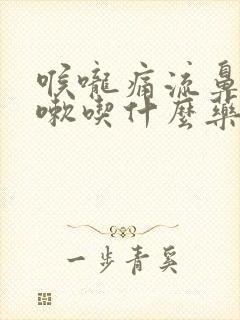 喉嚨痛流鼻
嗽喫什麼藥
一步青奚